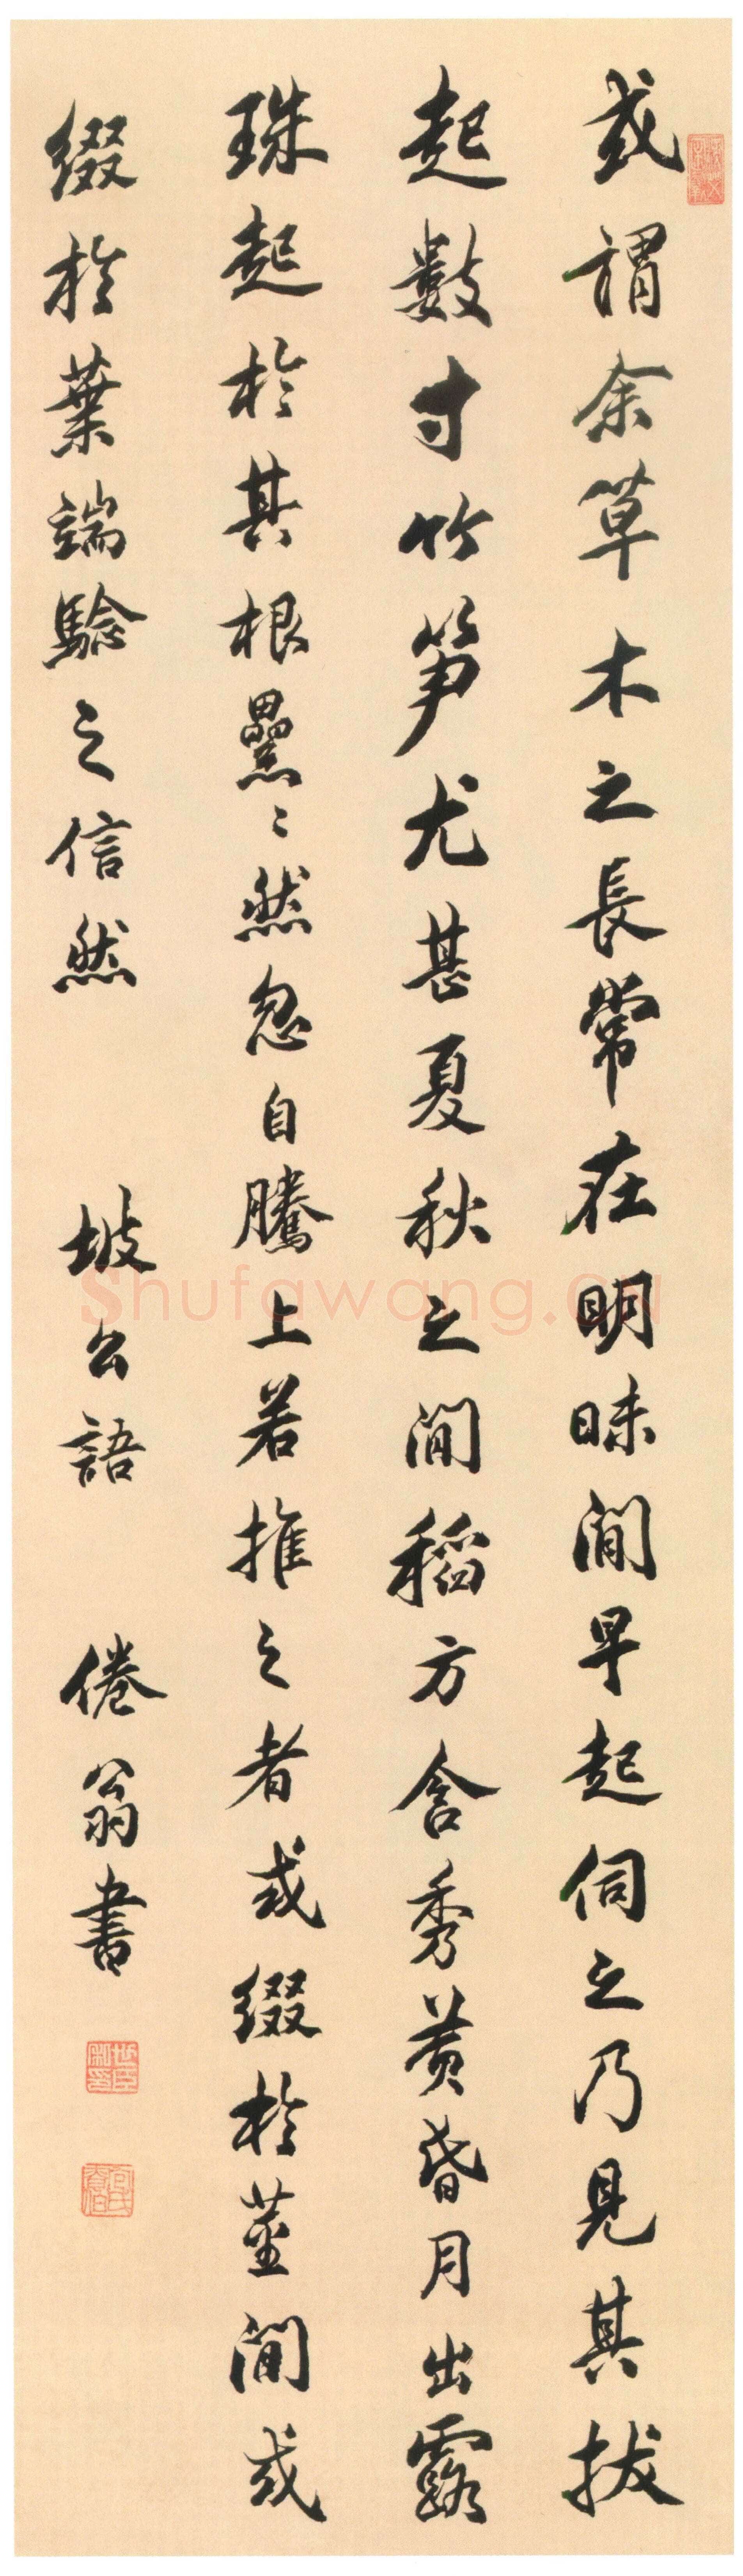 或謂余草木之長常在明昧間早起伺之乃見其拔
起數寸竹笋尤甚夏秋之間稻方含秀黄昏月出露
珠起於其根纍〻然忽自騰上若推之者或綴於莖間或
綴於葉端驗之信然
坡公語
倦翁書
世臣私印
Shufawang.cn